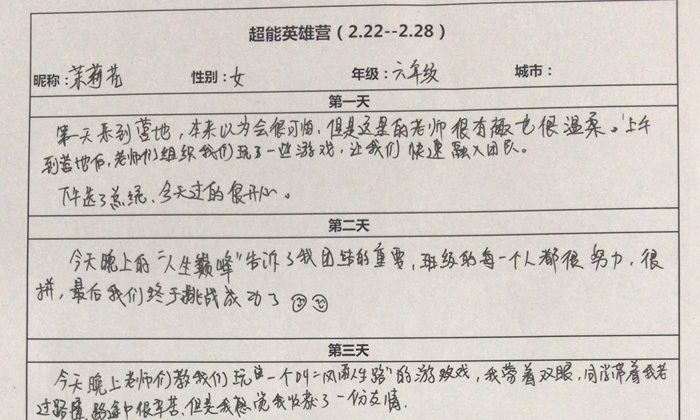 超能英雄营(2.22--2.28)
昵称:茉莉花 性别:女 年级:六年级 城市:
第一天
第一天来到营地,本来以为会很可怕,但是这里的老师很有趣也很温柔。上午
到营地后,老师们组织我们玩了一些游戏,让我们快速融入团队。
下午选了总统,今天过的很开心。
第二天
今天晚上的“人生巅峰”告诉了我团结的重要,班级的每一个人都很努力,很
拼,最后我们终于挑战成功了
第三天
今天晚上老师们教我们玩一个叫“风雨人生路”的游戏,我蒙着双眼,同学带着我走
过路,路途中很辛苦,但是我感觉我收获了一份友情.